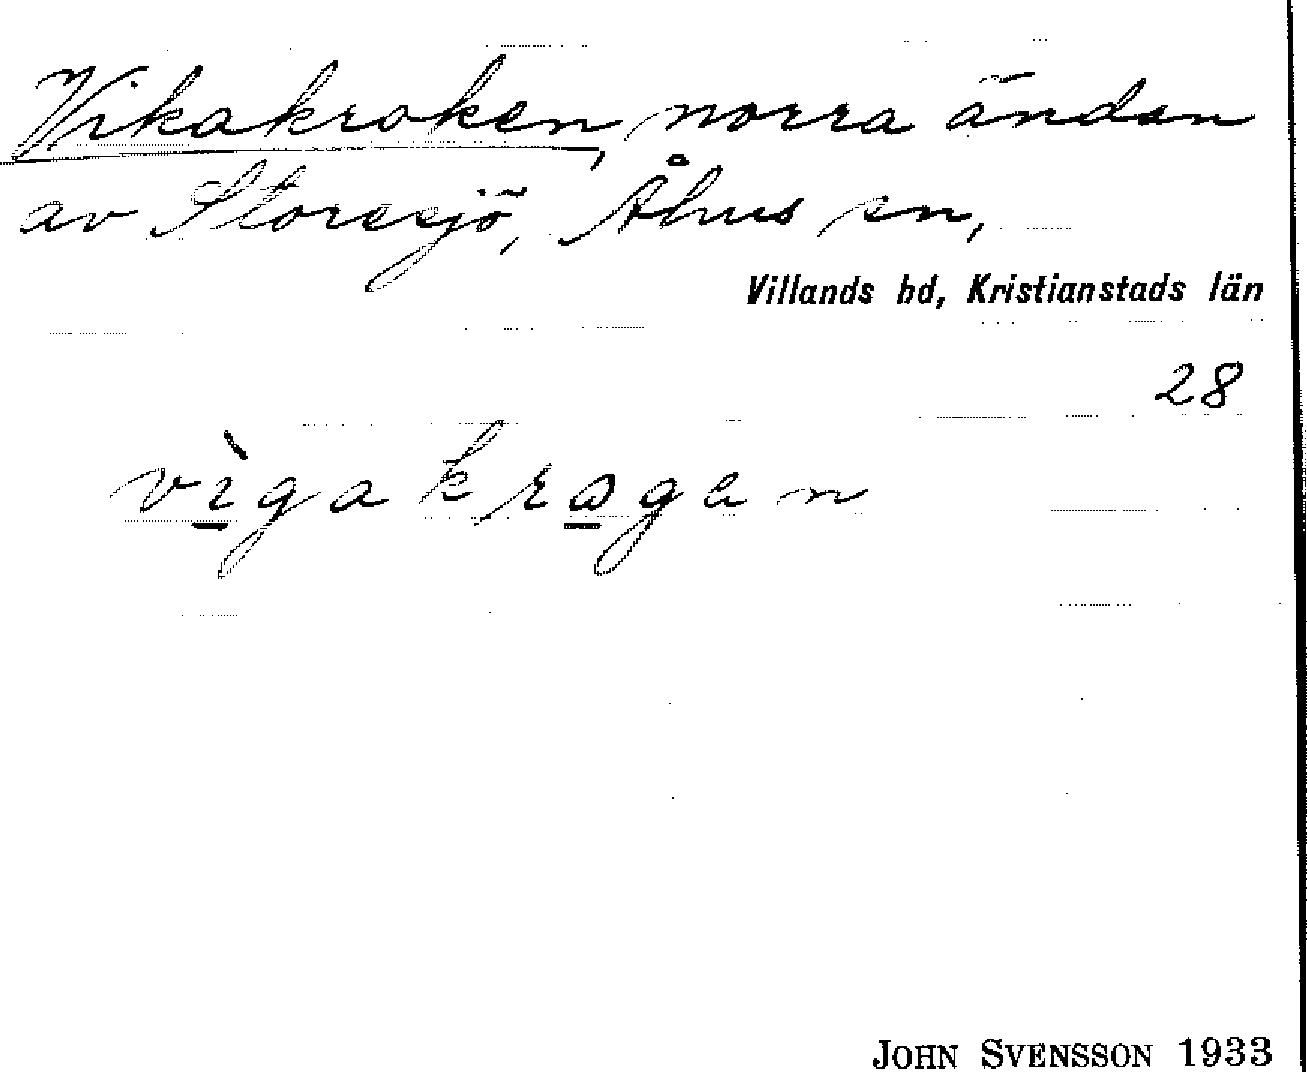 Vikakroken, norra ändan
av Storesjö, Åhus sn,
Villands hd, Kristianstads län
28
vìgakrogen
JOHN SVENSSON 1933